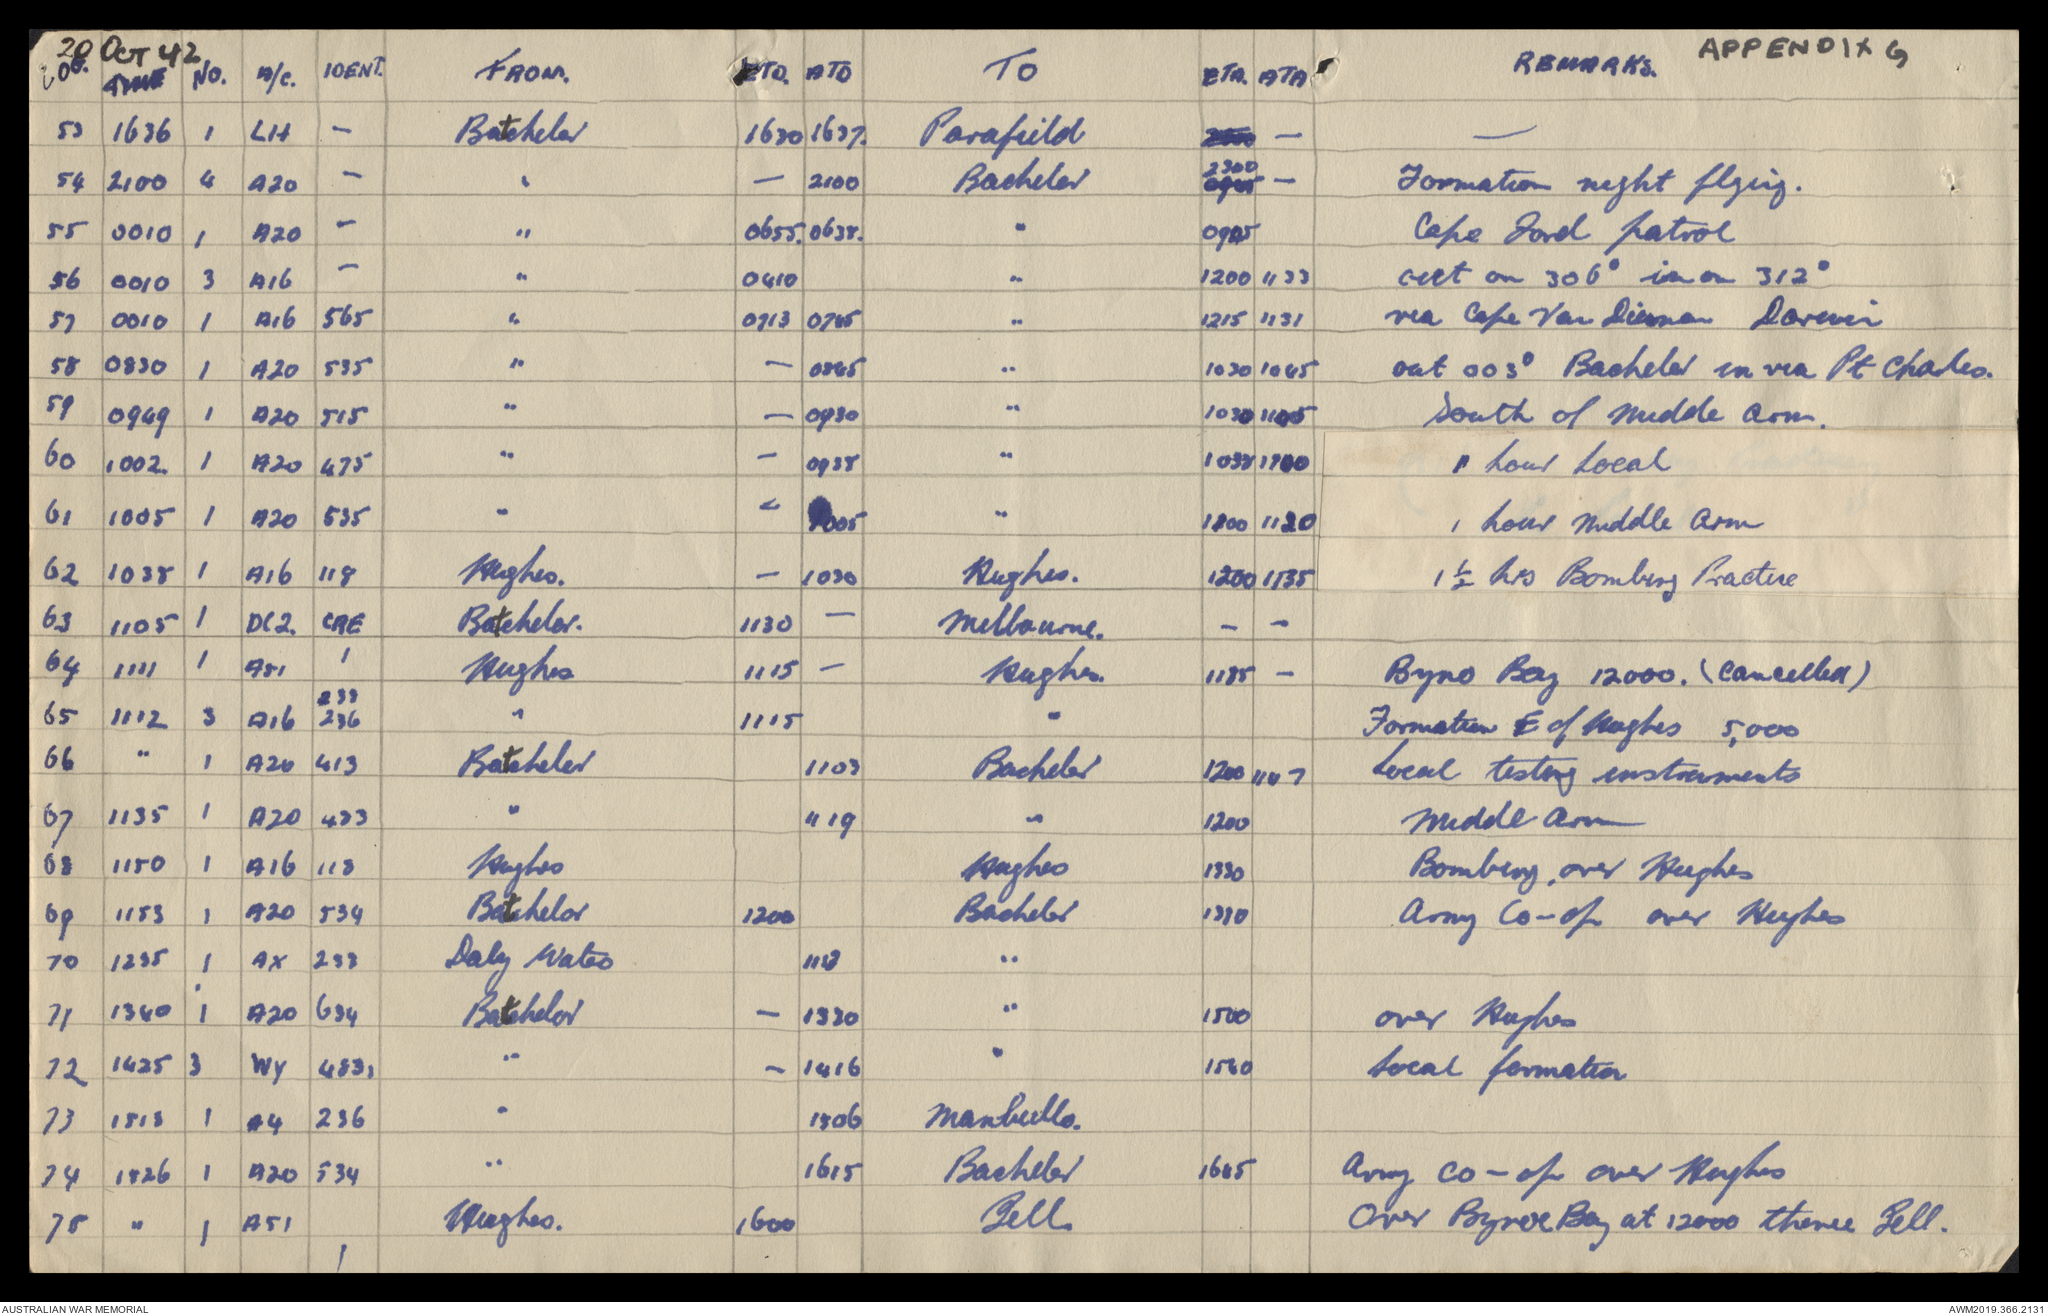 20 Oct 42 APPENDIX G
NO. A/c. IDENT. FROM. ETD. ATD TO ETA. ATA REMARKS.
53 1636 1 LH — Batchelor 1630 1637. Parafield — —
54 2100 4 A20 — " — 2100 Bachelor 2300 — Formation night flying.
55 0010 1 A20 — " 0655. 0638. " 0905 Cape Ford patrol
56 0010 3 A16 — " 0410 " 1200 1133 out on 306° in on 312°
57 0010 1 A16 565 " 0713 0745 " 1215 1131 via Cape Van Dieman Darwin
58 0830 1 A20 535 " — 0845 " 1030 1045 out 003° Bachelor in via Pt Charles.
59 0949 1 A20 515 " — 0930 " 1030 1105 South of Middle Arm.
60 1002. 1 A20 475 " — 0938 " 1038 1100 1 hour Local
61 1005 1 A20 535 " 1005 " 1200 1120 1 hour Middle Arm
62 1038 1 A16 118 Hughes. — 1030 Hughes. 1200 1135 1 ½ hrs Bombing Practice
63 1105 1 DC2. CRE Batchelor. 1130 — Melbourne. — —
64 1111 1 A51 1 Hughes 1115 — Hughes. 1185 — Byno Bay 12000. (cancelled)
233
65 1112 3 A16 236 " 1115 " Formation E of Hughes 5,000
66 " 1 A20 413 Batchelor 1103 Bachelor 1200 1147 Local testing instruments
67 1135 1 A20 433 " 1119 " 1200 Middle Arm
68 1150 1 A16 118 Hughes Hughes 1330 Bombing over Hughes
69 1153 1 A20 534 Batchelor 1200 Bachelor 1330 Army Co-op over Hughes
70 1235 1 AX 233 Daly Waters 1118 "
71 1340 1 A20 634 Batchelor — 1330 " 1500 over Hughes
72 1425 3 Wy 483, " — 1416 " 1540 Local formation
73 1513 1 A4 236 " 1506 Manbullo.
74 1526 1 A20 534 " 1615 Bachelor 1645 Army co-op over Hughes
75 " 1 A51 1 Hughes. 1600 Fell Over Bynoe Bay at 12000 thence Fell.
AUSTRALIAN WAR MEMORIAL AWM2019.366.2131